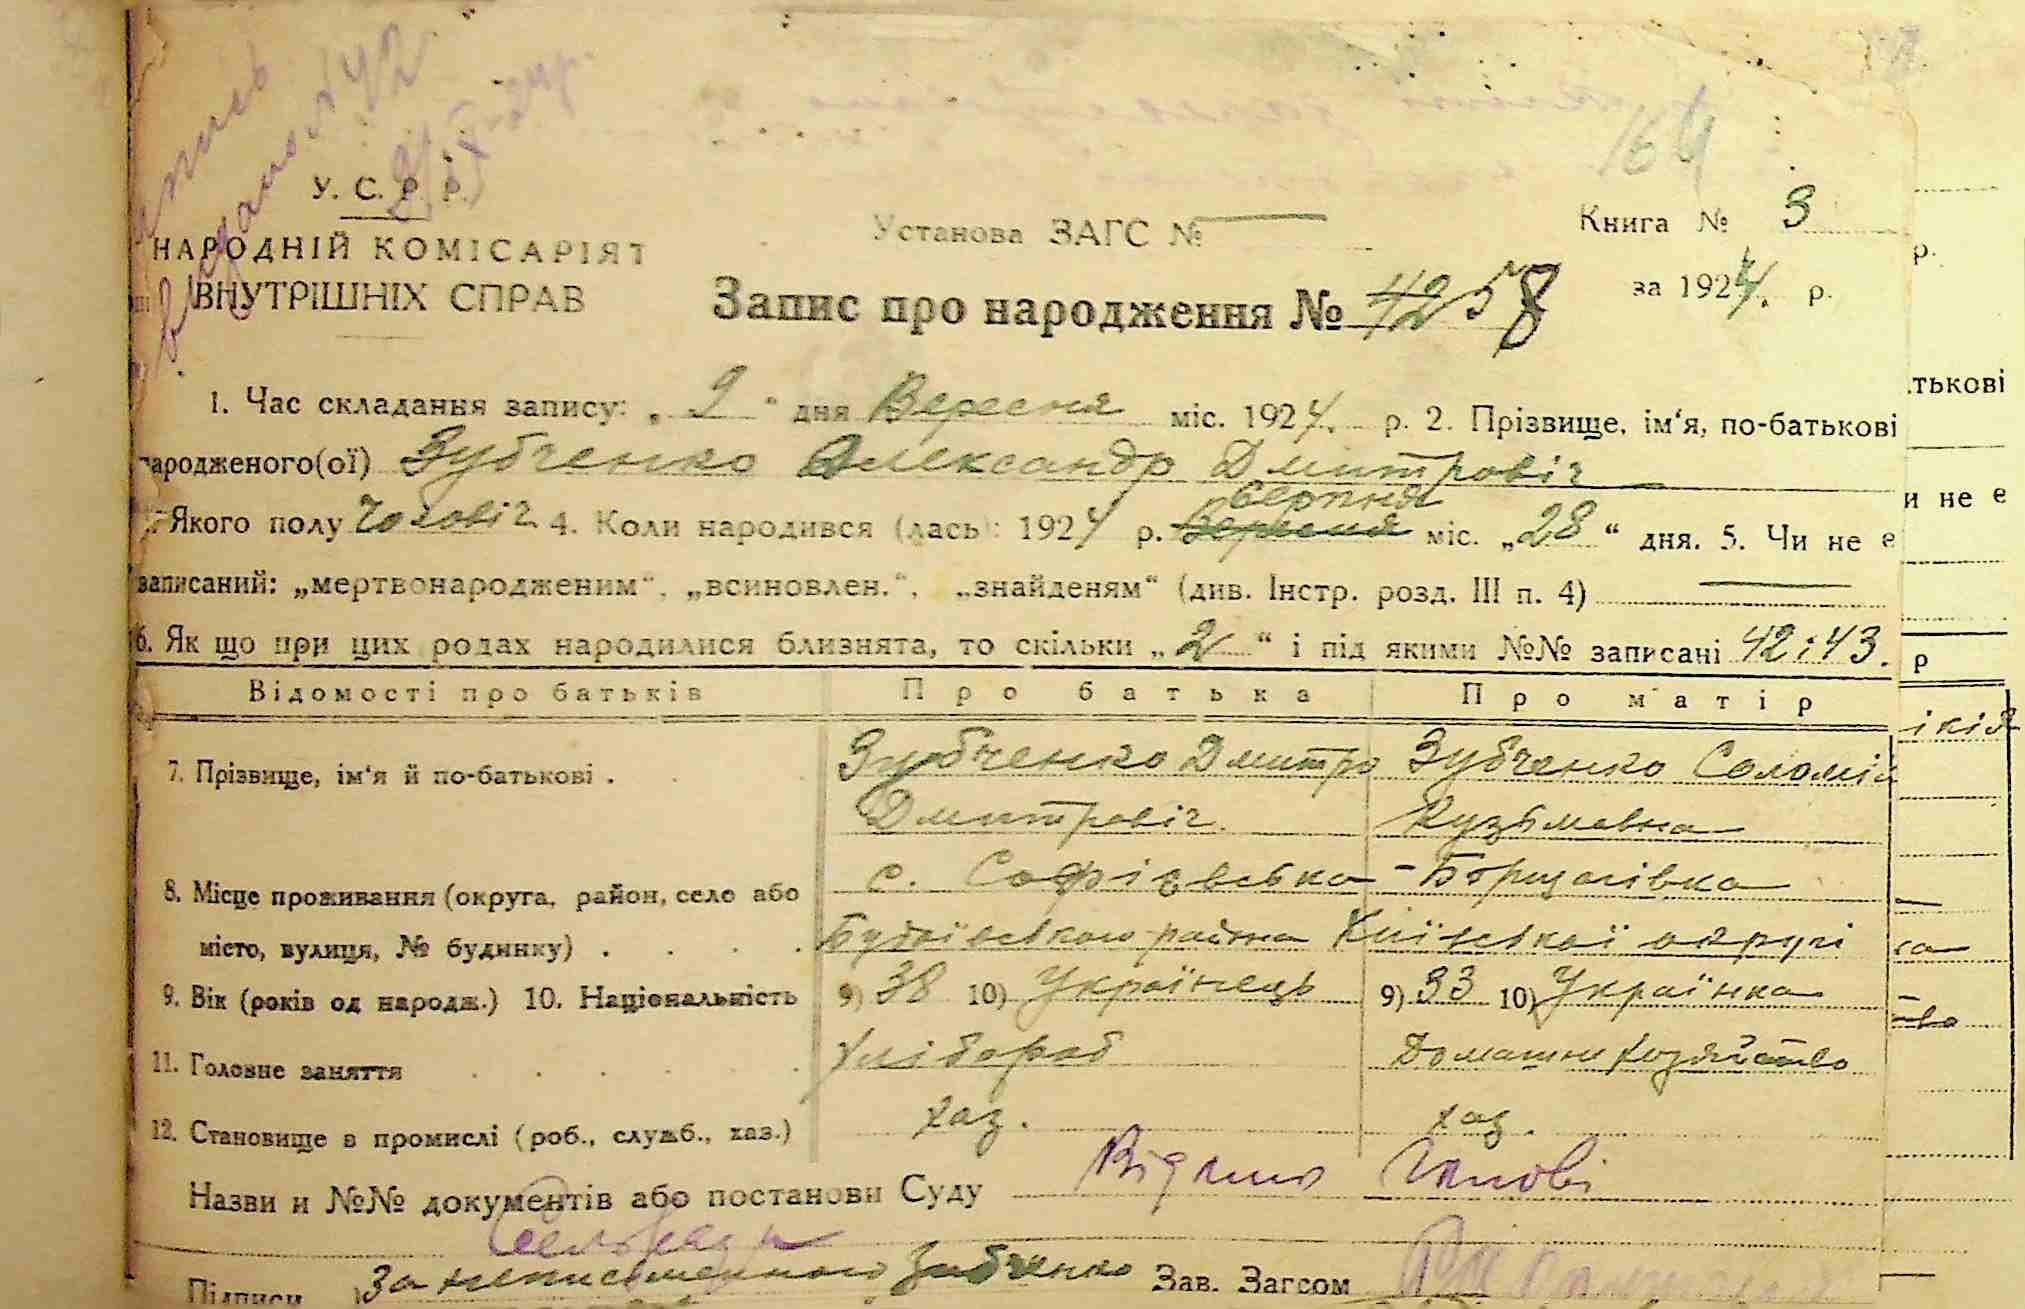 164
У. С. Р. Р.
НАРОДНІЙ КОМІСАРІЯТ
ВНУТРІШНІХ СПРАВ
Установа ЗАГС №
Книга № 3
за 1924. р.
Запис про народження № 42 58
1. Час складання запису: „ 2 “ дня Вересня міс. 1924. р. 2. Прізвище, ім‘я, по-батькові
народженого(ої) Зубченко Александр Дмитровіч
Якого полу Чоловіч 4. Коли народився (лась): 1924 р. Вересня серпня міс. „28“ дня. 5. Чи не є
записаний: „мертвонародженим“, „всиновлен.“, „знайденям“ (див. Інстр. розд. III п. 4)
6. Як що при цих родах народилися близнята, то скільки „2“ і під якими №№ записані 42 і 43.
Відомості про батьків Про батька Про матір
7. Прізвище, ім‘я й по-батькові . Зубченко Дмитро Зубченко Соломія
Дмитровіч Кузьмовна
8. Місце проживання (округа, район, село або с. Софієвська - Борщагівка
місто, вулиця, № будинку) . . . . Будаївського района Київської округі
9. Вік (років од народж.) 10. Національність 9) 38 10) Українець 9) 33 10) Українка
11. Головне заняття хлібороб Домашнє хозяйство
12. Становище в промислі (роб., служб., хаз.) хаз. хаз.
Назви и №№ документів або постанови Суду
Сельради
Підписи За неписьменного Зубченко Зав. Загсом
р.
тькові
и не є
р